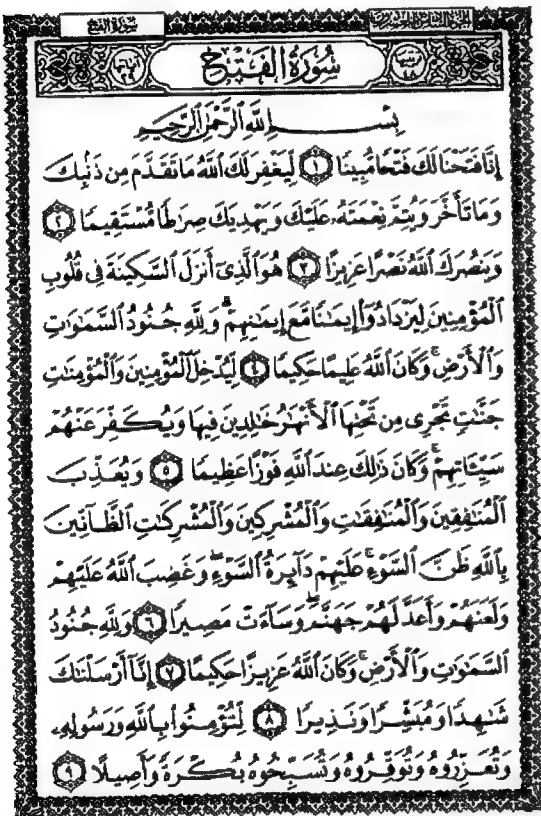 سورة الفتح
الجزء السادس والعشرون
سُورَةُ الفَتْحِ
بِسْمِ اللَّهِ الرَّحْمَٰنِ الرَّحِيمِ
إِنَّا فَتَحْنَا لَكَ فَتْحًا مُّبِينًا ١ لِّيَغْفِرَ لَكَ اللَّهُ مَا تَقَدَّمَ مِن ذَنۢبِكَ
وَمَا تَأَخَّرَ وَيُتِمَّ نِعْمَتَهُۥ عَلَيْكَ وَيَهْدِيَكَ صِرَٰطًا مُّسْتَقِيمًا ٢
وَيَنصُرَكَ اللَّهُ نَصْرًا عَزِيزًا ٣ هُوَ الَّذِىٓ أَنزَلَ السَّكِينَةَ فِى قُلُوبِ
الْمُؤْمِنِينَ لِيَزْدَادُوٓا۟ إِيمَٰنًا مَّعَ إِيمَٰنِهِمْ ۗ وَلِلَّهِ جُنُودُ السَّمَٰوَٰتِ
وَالْأَرْضِ ۚ وَكَانَ اللَّهُ عَلِيمًا حَكِيمًا ٤ لِّيُدْخِلَ الْمُؤْمِنِينَ وَالْمُؤْمِنَٰتِ
جَنَّٰتٍ تَجْرِى مِن تَحْتِهَا الْأَنْهَٰرُ خَٰلِدِينَ فِيهَا وَيُكَفِّرَ عَنْهُمْ
سَيِّـَٔاتِهِمْ ۚ وَكَانَ ذَٰلِكَ عِندَ اللَّهِ فَوْزًا عَظِيمًا ٥ وَيُعَذِّبَ
الْمُنَٰفِقِينَ وَالْمُنَٰفِقَٰتِ وَالْمُشْرِكِينَ وَالْمُشْرِكَٰتِ الظَّآنِّينَ
بِاللَّهِ ظَنَّ السَّوْءِ ۚ عَلَيْهِمْ دَآئِرَةُ السَّوْءِ ۖ وَغَضِبَ اللَّهُ عَلَيْهِمْ
وَلَعَنَهُمْ وَأَعَدَّ لَهُمْ جَهَنَّمَ ۖ وَسَآءَتْ مَصِيرًا ٦ وَلِلَّهِ جُنُودُ
السَّمَٰوَٰتِ وَالْأَرْضِ ۚ وَكَانَ اللَّهُ عَزِيزًا حَكِيمًا ٧ إِنَّآ أَرْسَلْنَٰكَ
شَٰهِدًا وَمُبَشِّرًا وَنَذِيرًا ٨ لِّتُؤْمِنُوا۟ بِاللَّهِ وَرَسُولِهِۦ
وَتُعَزِّرُوهُ وَتُوَقِّرُوهُ وَتُسَبِّحُوهُ بُكْرَةً وَأَصِيلًا ٩